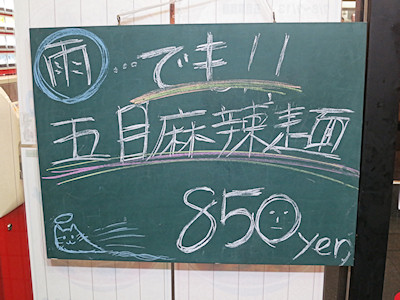 雨…でも!!
五目麻辣麺
850yen